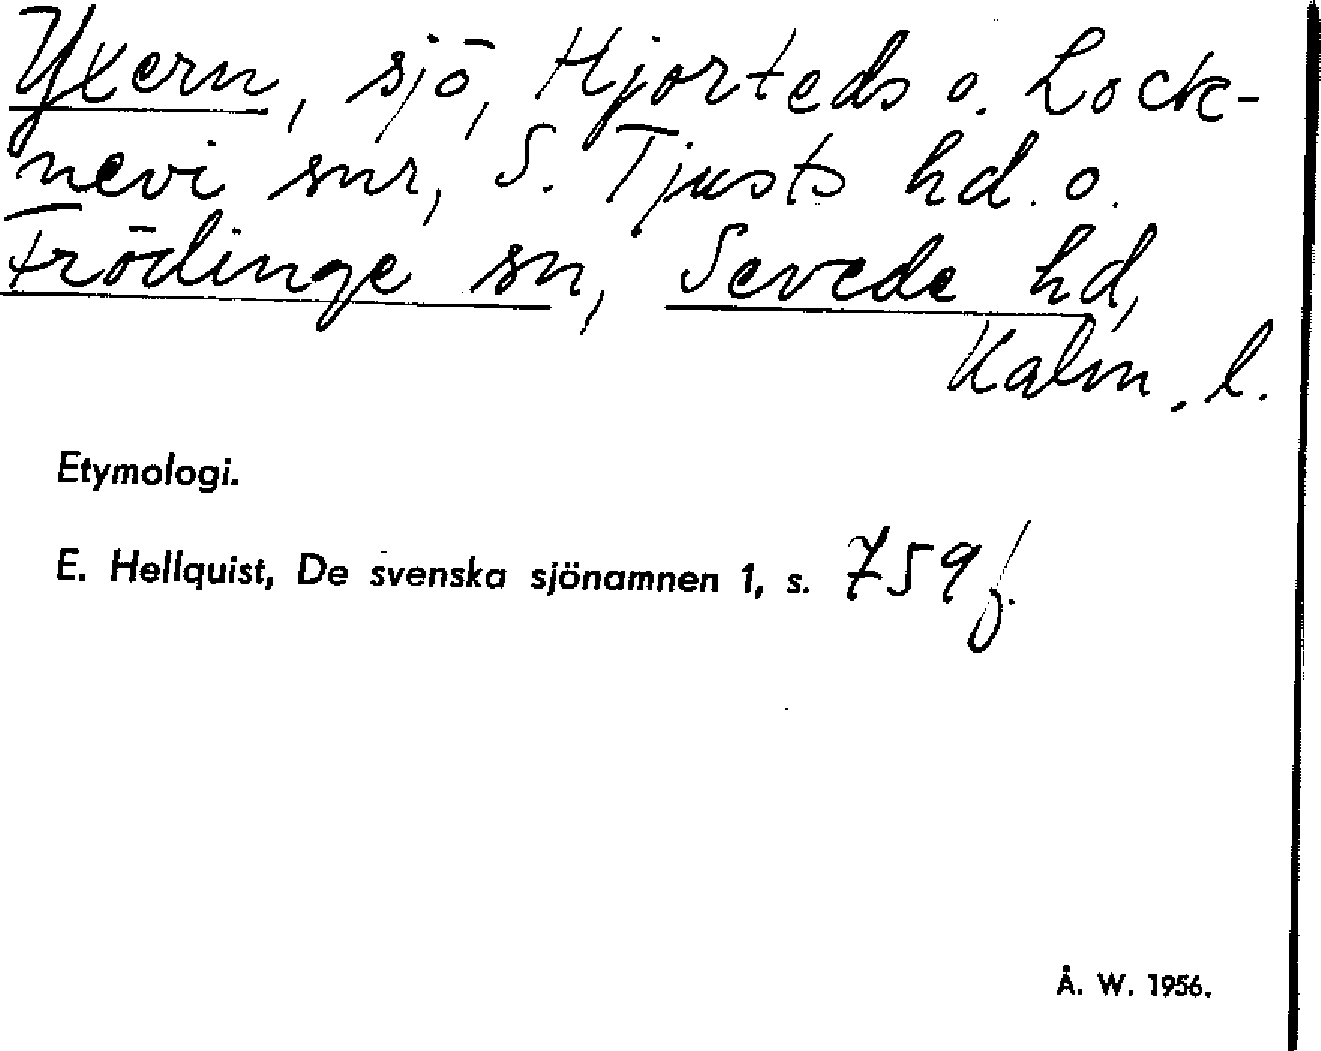 Yxern, sjö, Hjorteds o. Lock-
nevi snr, S. Tjusts hd. o.
Frödinge sn, Sevede hd,
Kalm. l.
Etymologi.
E. Hellquist, De svenska sjönamnen 1, s. 759 f.
Å. W. 1956.